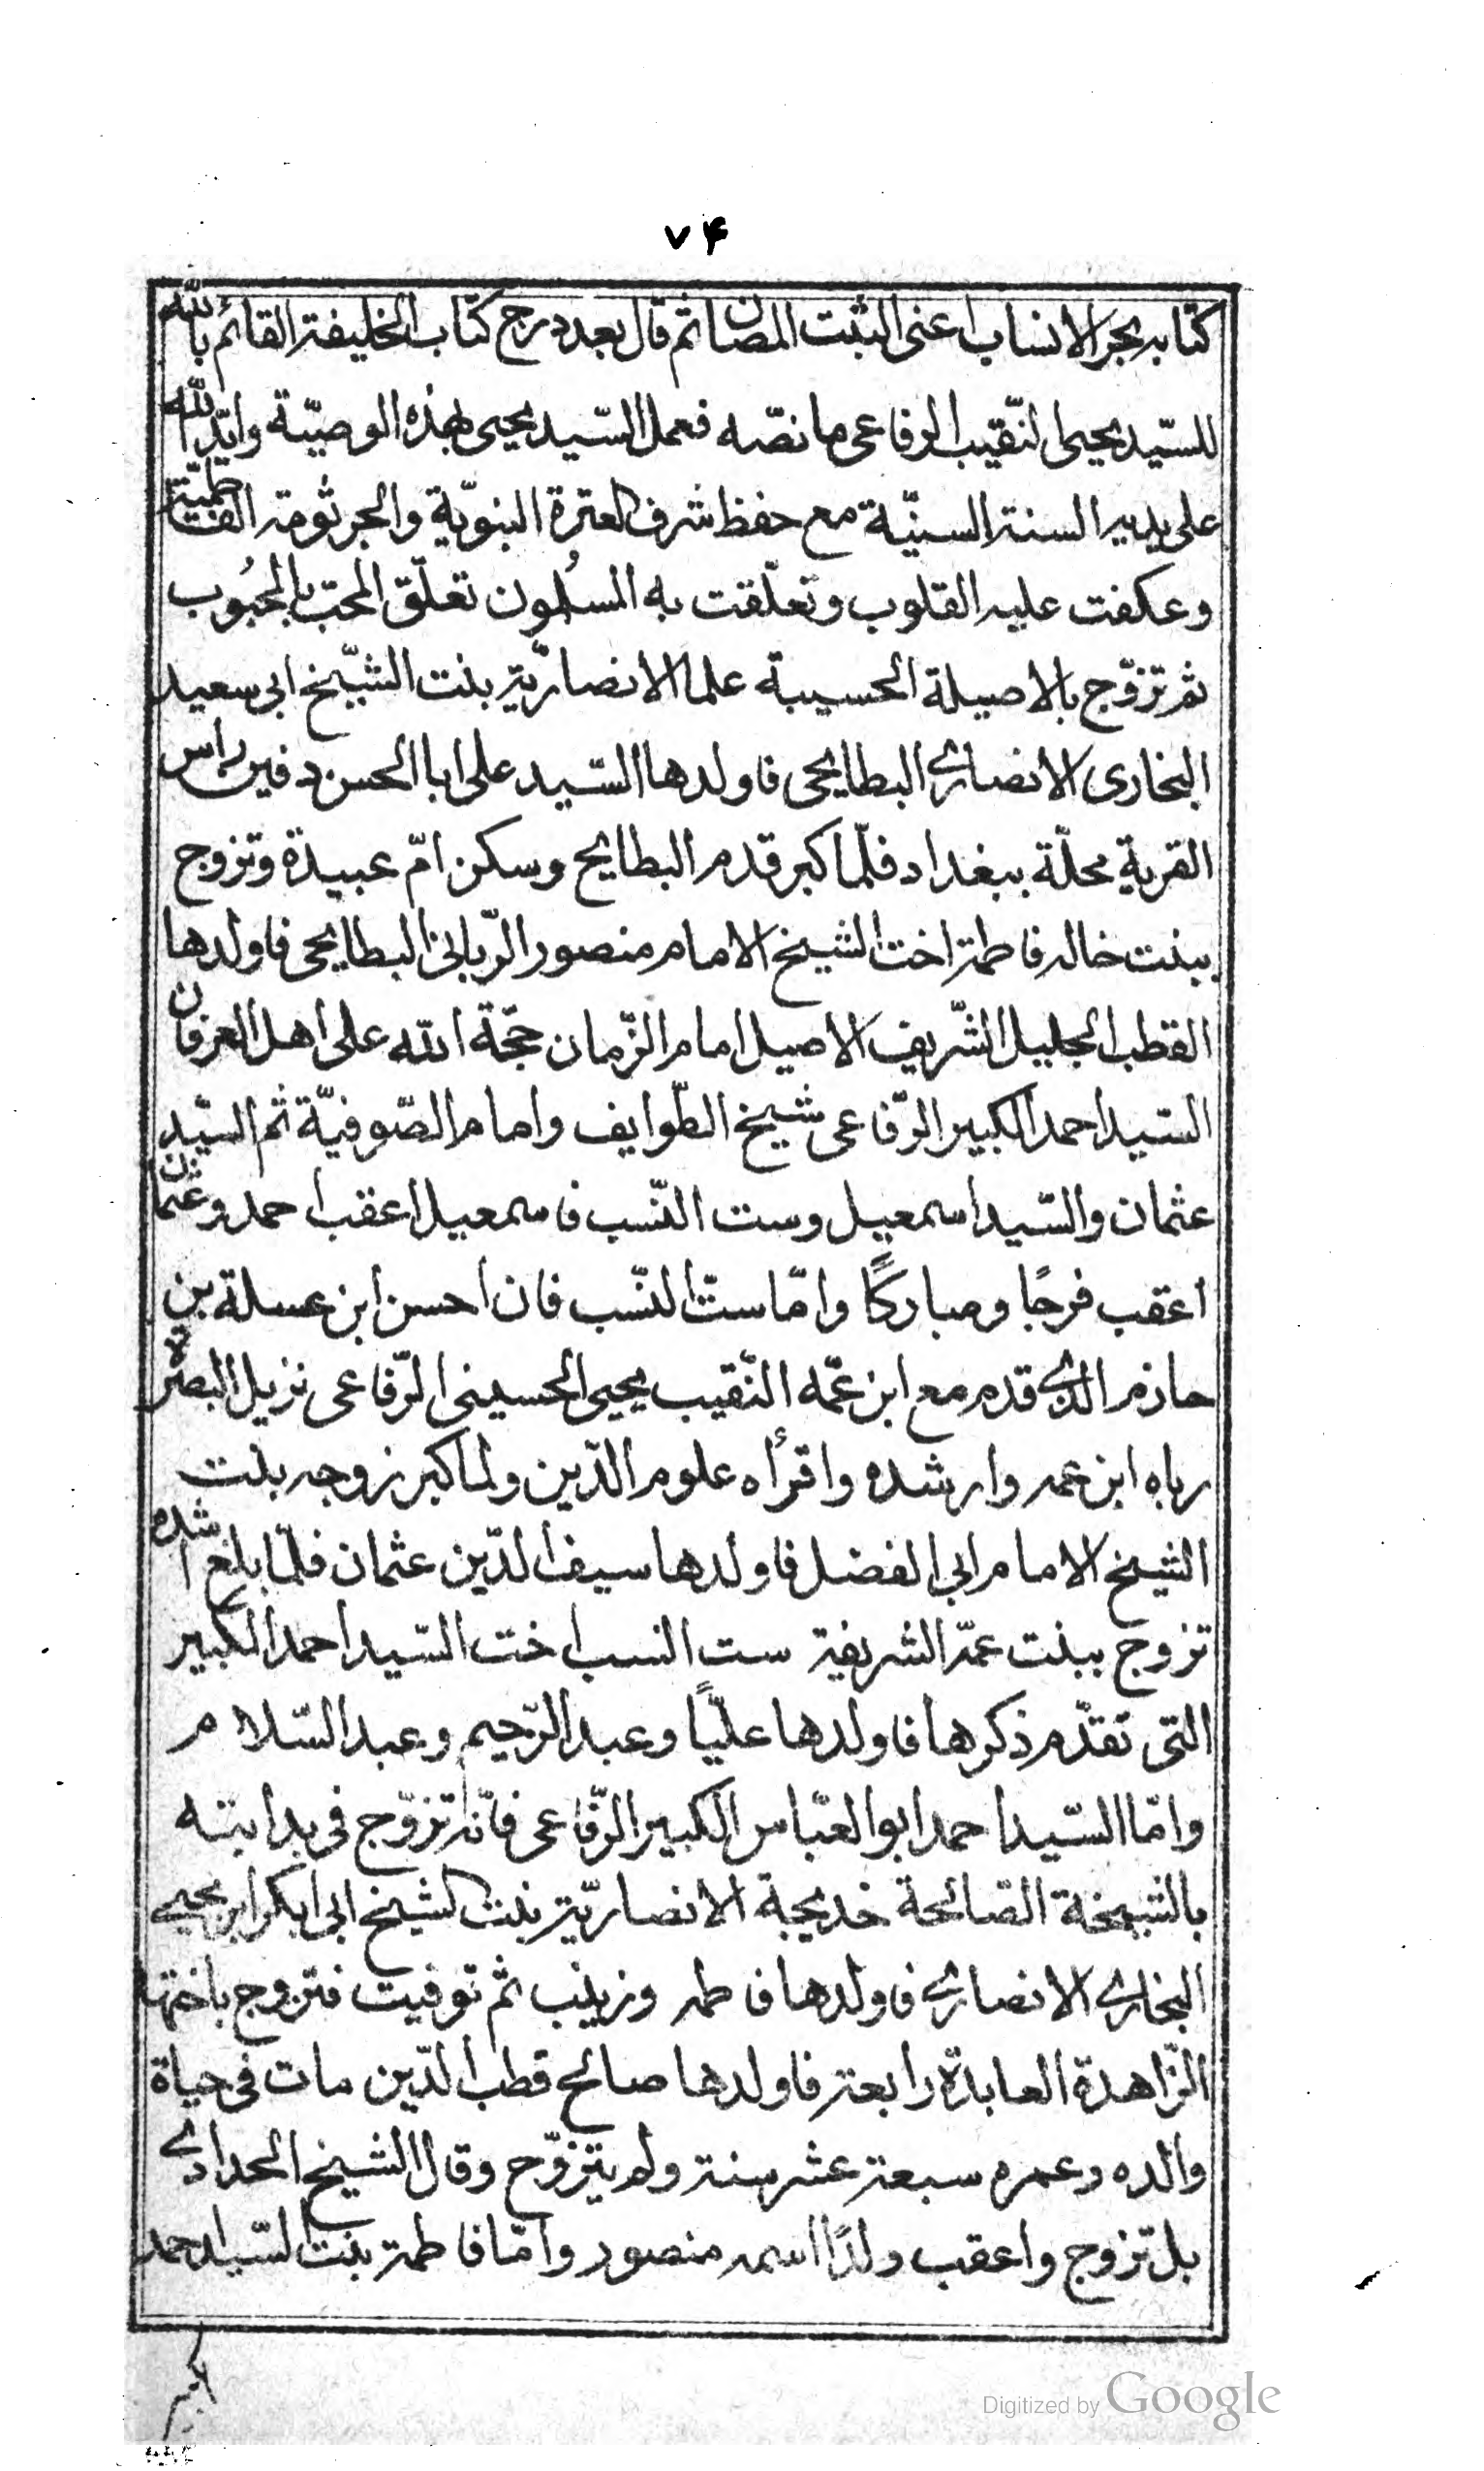 ٧٤
كتابه بحر الانساب اعنى الثبت المصان ثم قال بعد درج كتاب الخليفة القائم بالله
للسّيد يحيى النّقيب الرفاعى ما نصّه فعمل السّيد يحيى بهذه الوصيّة وايّد الله
على يديه السنة السنيّة مع حفظ شرف العترة النبويّة والجرثومة الفاطميّة
وعكفت عليه القلوب وتعلّقت به المسلمون تعلّق المحبّ بالمحبُوب
ثم تزوّج بالاصيلة الحسيبة علما الانصاريّة بنت الشّيخ ابى سعيد
البخارى الانصارى البطايحى فاولدها السّيد على ابا الحسن دفين راس
القرية محلّة ببغداد فلمّا كبر قدم البطايح وسكن امّ عبيدة وتزوج
ببنت خاله فاطمة اخت الشيخ الامام منصور الرّبانى البطايحى فاولدها
القطب الجليل الشّريف الاصيل امام الزّمان حجّة الله على اهل العرفان
السّيد احمد الكبير الرّفاعى شيخ الطّوايف وامام الصّوفيّة ثم السّيد
عثمان والسّيد اسمعيل وست النّسب فاسمعيل اعقب احمد وعثمان
اعقب فرجًا ومباركًا وامّا ستّ النّسب فان احسن ابن عسلة بن
حازم الذى قدم مع ابن عمّه النّقيب يحيى الحسينى الرّفاعى نزيل البصرة
رباه ابن عمه وارشده واقرأه علوم الدّين ولما كبر زوجه بنت
الشيخ الامام ابى الفضل فاولدها سيف الدّين عثمان فلمّا بلغ اشده
تزوج ببنت عمّه الشريفة ست النسب اخت السّيد احمد الكبير
التى تقدّم ذكرها فاولدها عليّا وعبد الرّحيم وعبد السّلام
وامّا السّيد احمد ابو العبّاس الكبير الرّفاعى فانّه تزوّج فى بدايته
بالشيخة الصّالحة خديجة الانصاريّة بنت الشيخ ابى ابكر ابن يحيى
البخارى الانصارى فاولدها فاطمه وزينب ثم توفيت فتزوج باختها
الزّاهدة العابدة رابعة فاولدها صالح قطب الدّين مات فى حياة
والده وعمره سبعة عشر سنة ولم يتزوّج وقال الشيخ الحدادى
بل تزوج واعقب ولدًا اسمه منصور وامّا فاطمة بنت السّيد احمد
الكبير
Digitized by Google